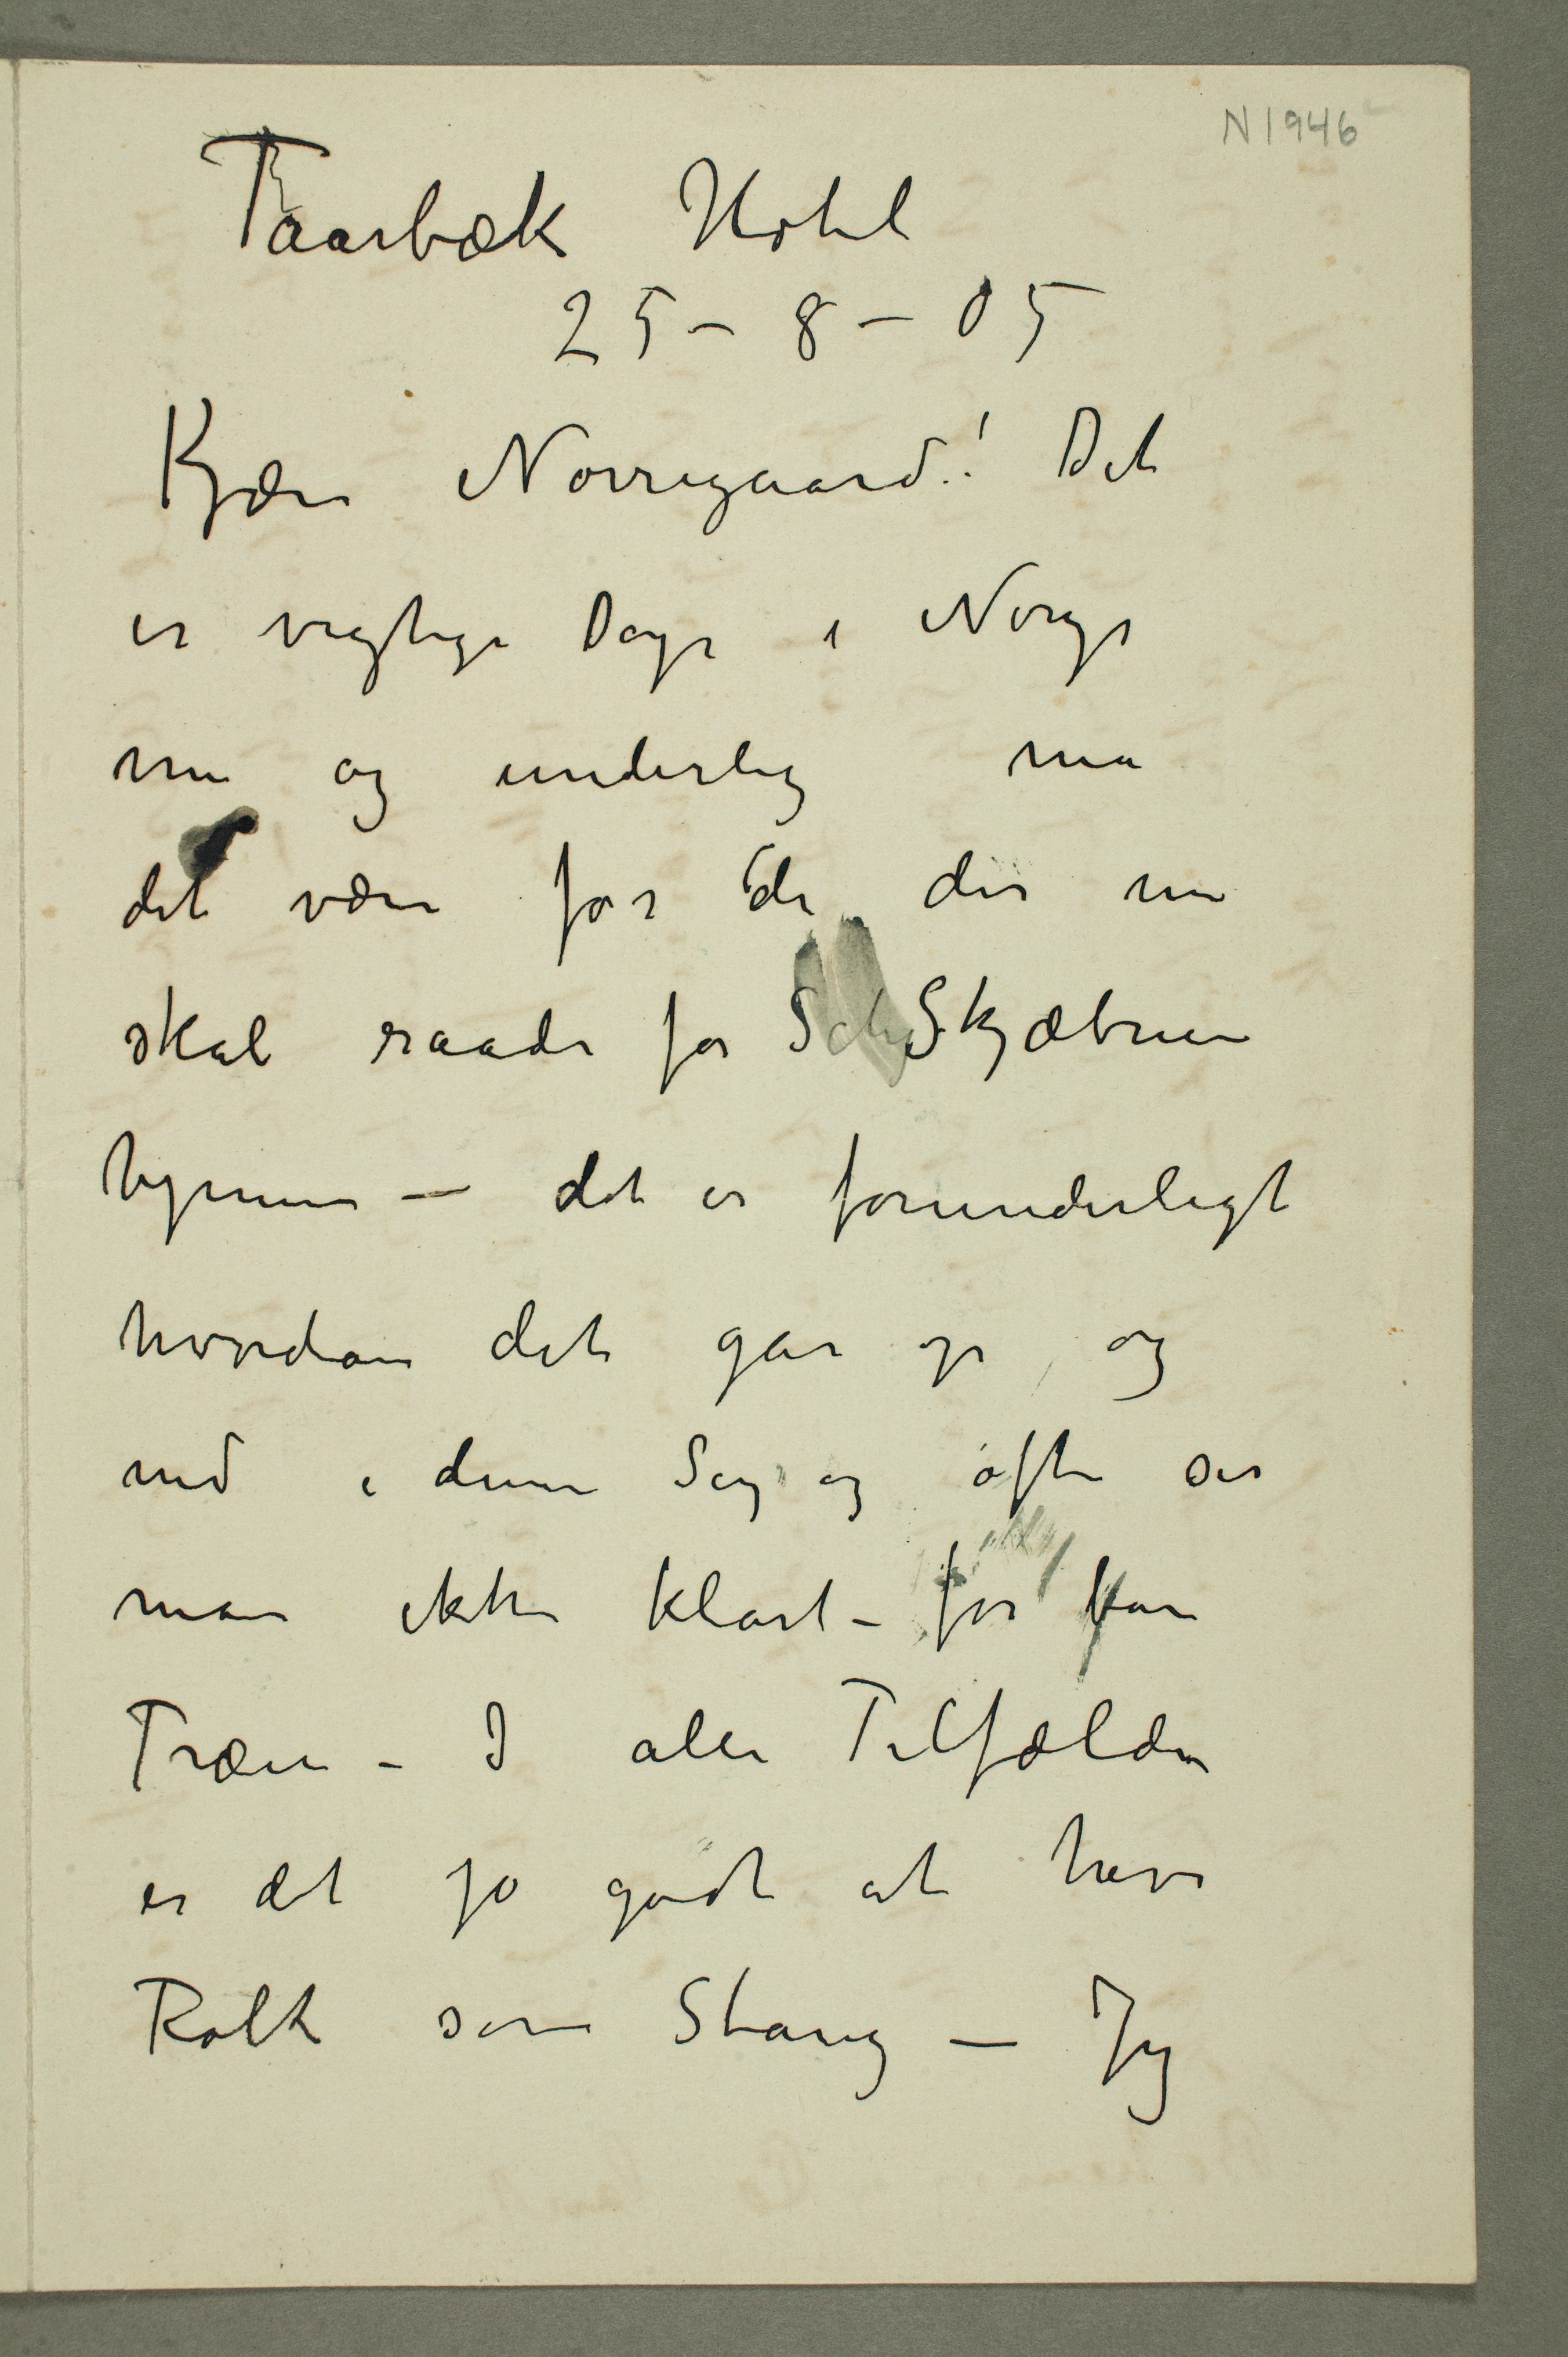 N 1946
Taarbæk Hotel
25 – 8 – 05
Kjære Nørregaard! Det
er vigtige Dage i Norge
nu og underlig må
det være for de der nu
skal raade for Sch Skjæbnen
hjemme – det er forunderligt
hvordan det går op og
ned i denne Sag og ofte ser
man ikke klart – for bare
Træer – I alle Tilfælder
er det jo godt at have
Folk som Stang – Jeg